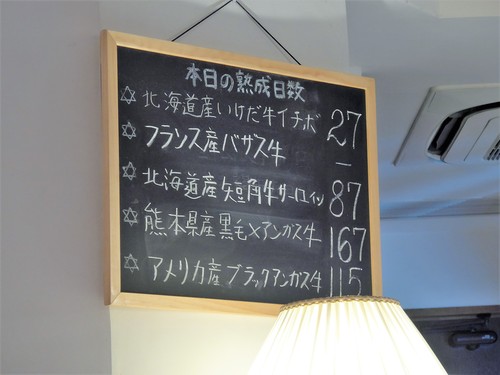 本日の熟成日数
☆北海道産いけだ牛イチボ 27
☆フランス産バザス牛 –
☆北海道産短角牛サーロイン 87
☆熊本県産黒毛×アンガス牛 167
☆アメリカ産ブラックアンガス牛 115